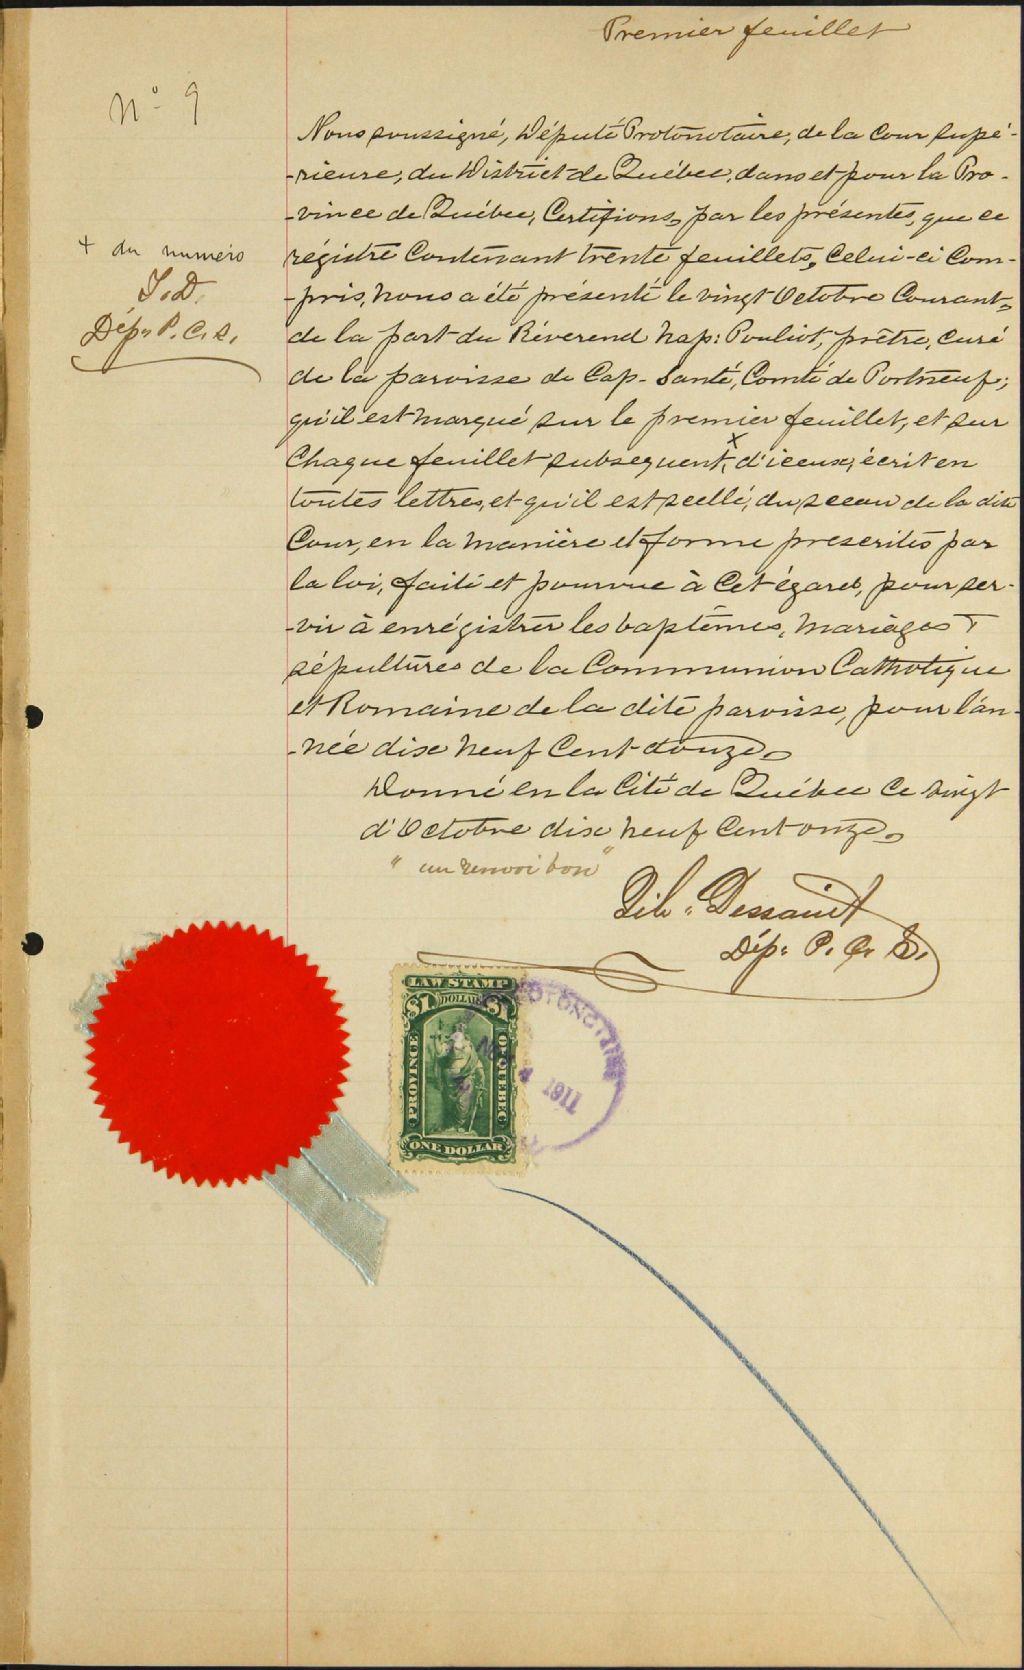 Premier feuillet
No 9
Nous soussigné, Député Protonotaire, de la Cour Supé-
-rieure, du District de Québec, dans et pour la Pro-
-vince de Québec, Certifions, par les présentes, que ce
régistre Contenant trente feuillets, Celui-ci Com-
-pris, nous a été présenté le vingt Octobre Courant,
de la part du Révérend Nap: Pouliot, prêtre, curé
de la paroisse de Cap-Santé, Comté de Portneuf;
qu'il est marqué sur le premier feuillet, et sur
Chaque feuillet subsequent, x d'iceux, écrit en
toutes lettres, et qu'il est scellé, du sceau de la dite
Cour, en la manière et forme prescrites par
la loi, faite et pourvue à Cet égard, pour ser-
-vir à enrégistrer les baptêmes, mariages
sépultures de la Communion Catholique
et Romaine de la dite paroisse, pour l'an-
-née dix neuf Cent douze.
Donné en la Cité de Québec Ce vingt
d'Octobre dix neuf Cent onze.
"un renvoi bon"
Dessault
Dép: P. C. S.
+ du numéro
Dép. P. C. S.
LAW STAMP
$1 DOLLAR $1
PROVINCE QUEBEC
ONE DOLLAR
NOV 4 1911